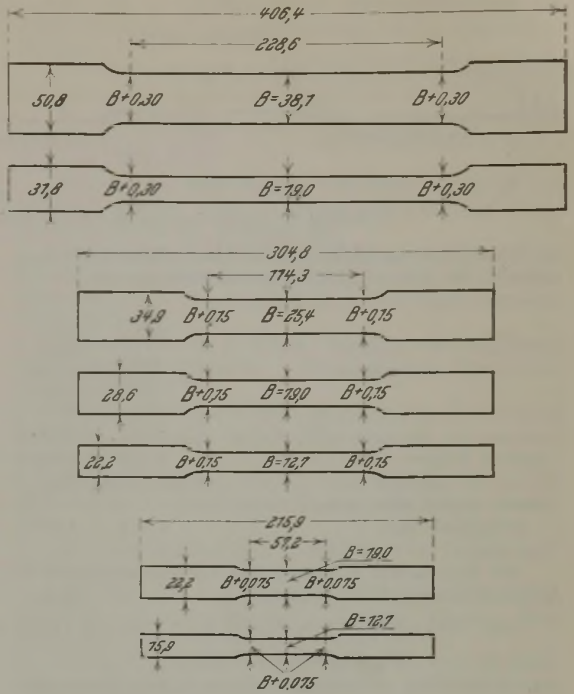 406,4
228,6
50,8 B+0,30 B=38,1 B+0,30
31,8 B+0,30 B=19,0 B+0,30
304,8
114,3
34,9 B+0,15 B=25,4 B+0,15
28,6 B+0,15 B=19,0 B+0,15
22,2 B+0,15 B=12,7 B+0,15
215,9
57,2
B=19,0
22,2 B+0,075 B+0,075
B=12,7
15,9
B+0,075